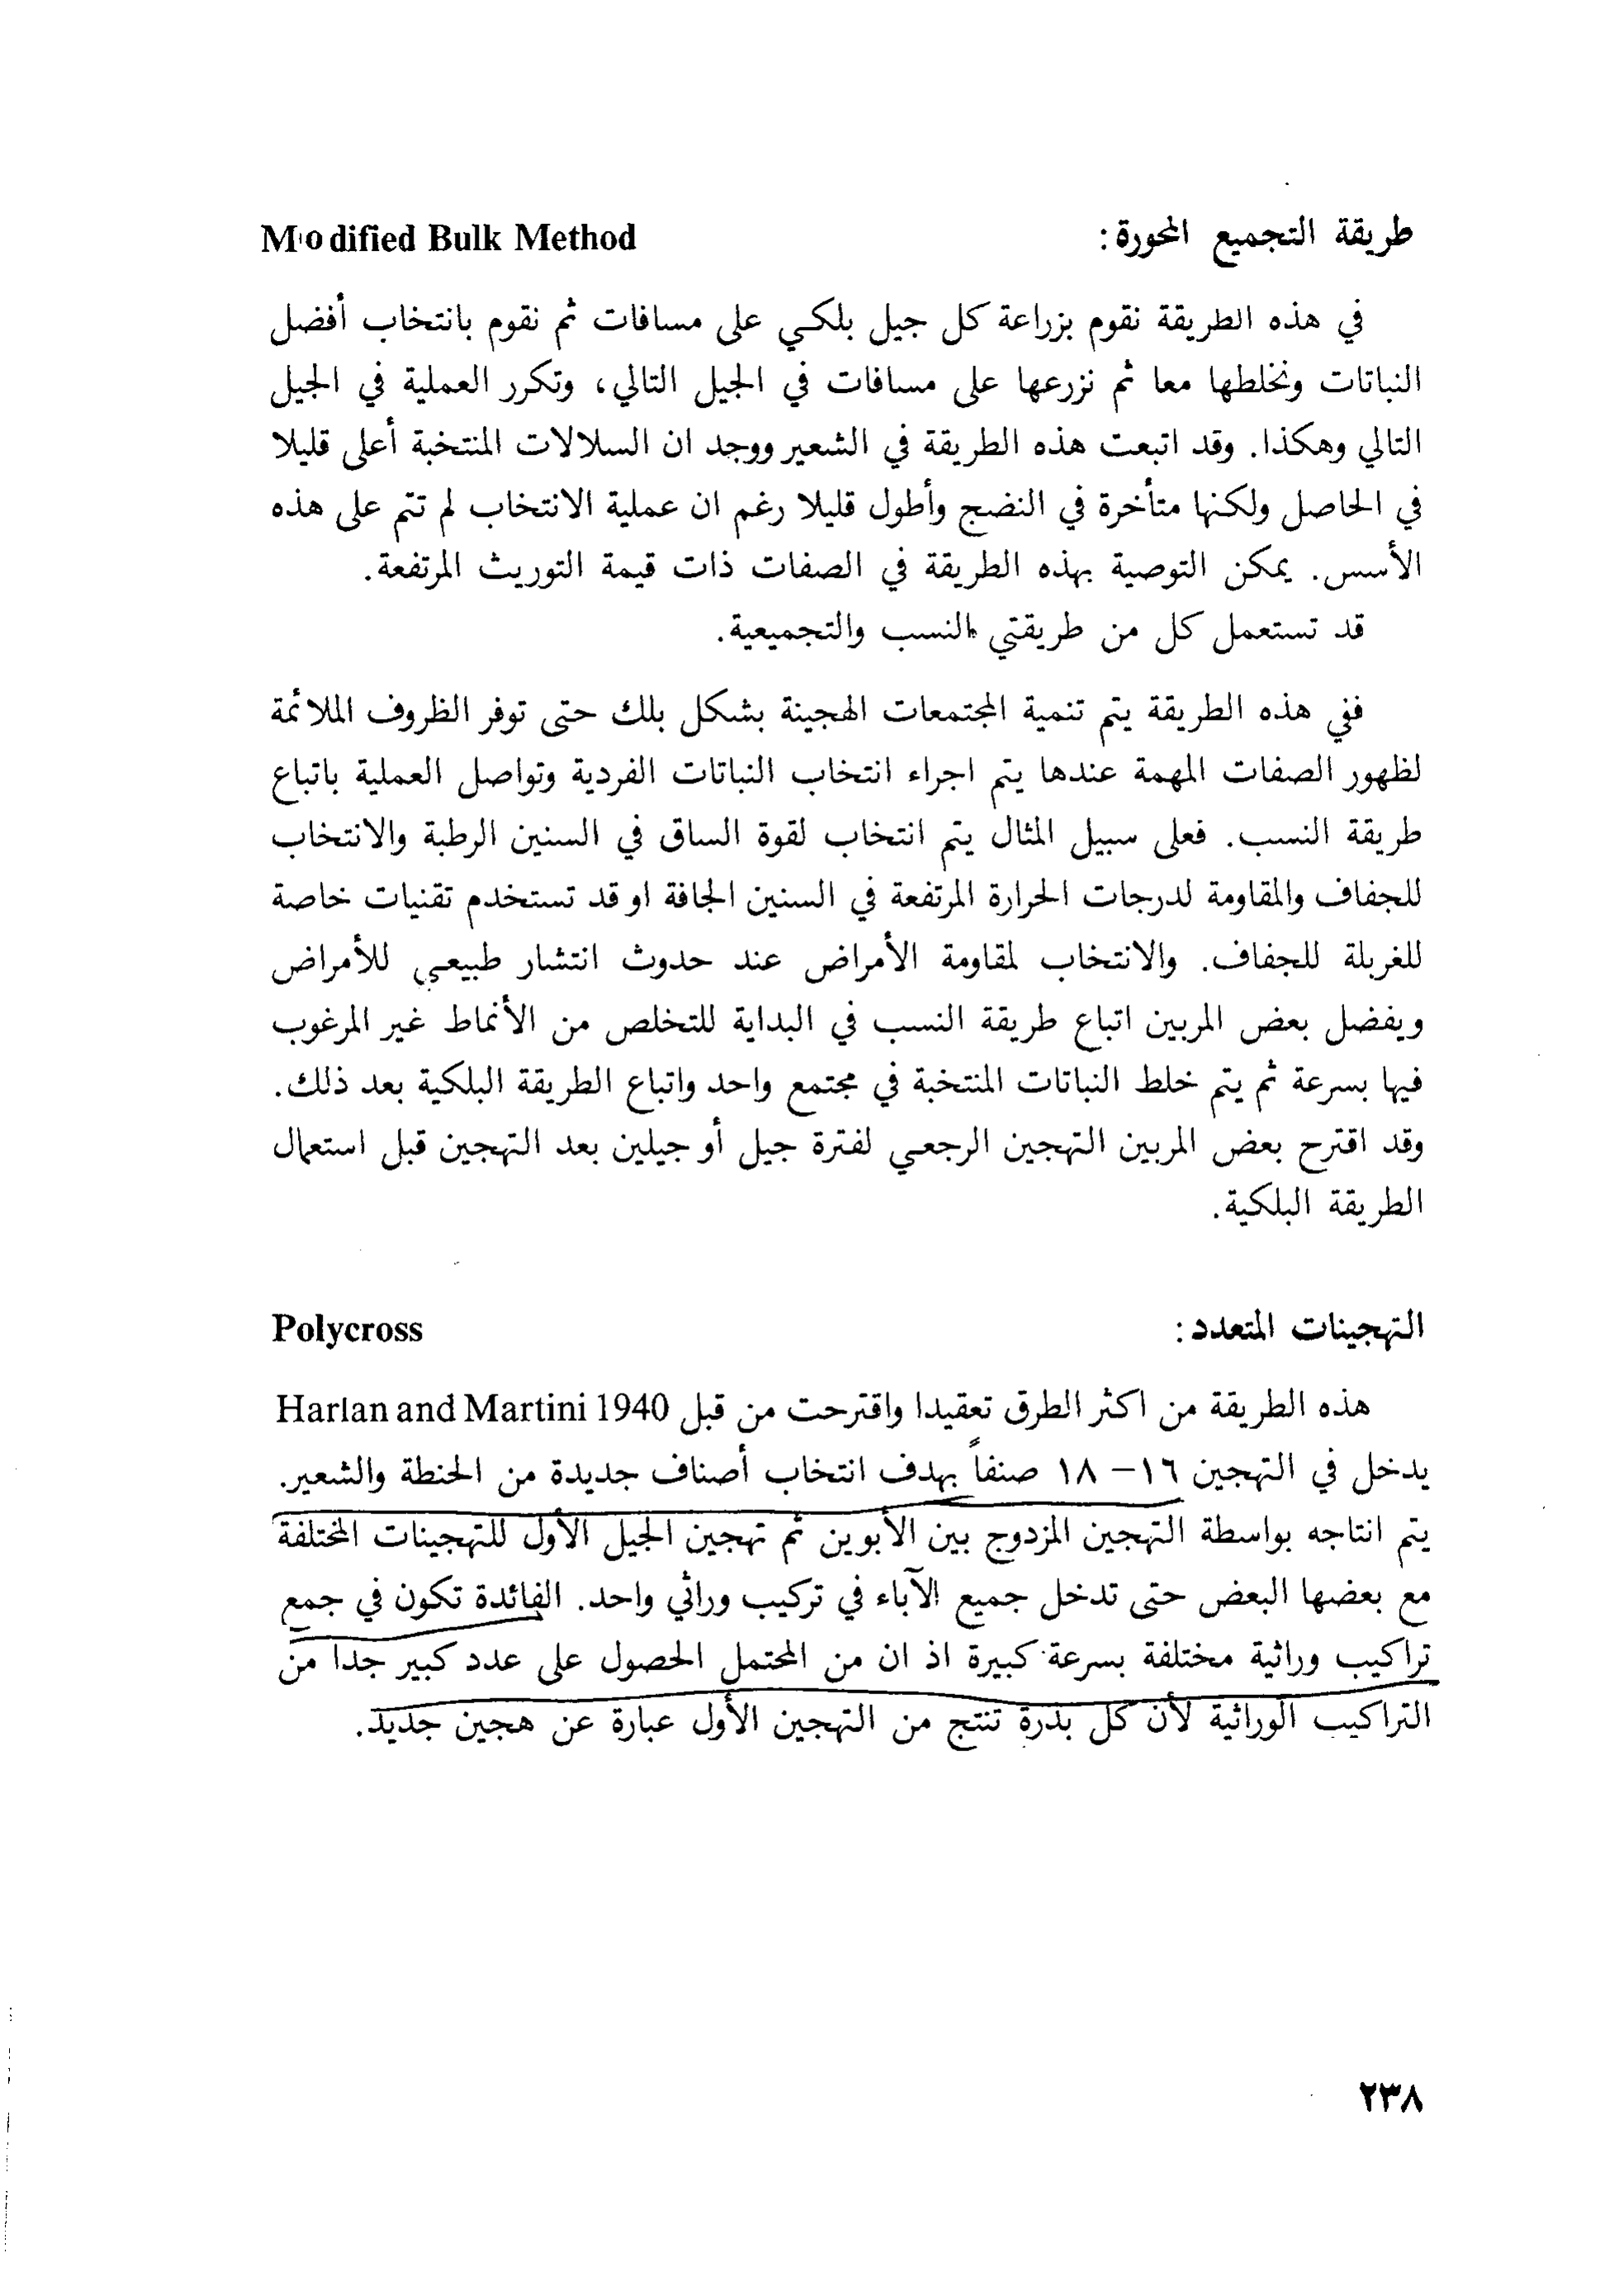 طريقة التجميع المحورة: Modified Bulk Method
في هذه الطريقة نقوم بزراعة كل جيل بلكي على مسافات ثم نقوم بانتخاب أفضل
النباتات ونخلطها معا ثم نزرعها على مسافات في الجيل التالي، وتكرر العملية في الجيل
التالي وهكذا. وقد اتبعت هذه الطريقة في الشعير ووجد ان السلالات المنتخبة أعلى قليلا
في الحاصل ولكنها متأخرة في النضج وأطول قليلا رغم ان عملية الانتخاب لم تتم على هذه
الأسس. يمكن التوصية بهذه الطريقة في الصفات ذات قيمة التوريث المرتفعة.
قد تستعمل كل من طريقتي النسب والتجميعية.
ففي هذه الطريقة يتم تنمية المجتمعات الهجينة بشكل بلك حتى توفر الظروف الملائمة
لظهور الصفات المهمة عندها يتم اجراء انتخاب النباتات الفردية وتواصل العملية باتباع
طريقة النسب. فعلى سبيل المثال يتم انتخاب لقوة الساق في السنين الرطبة والانتخاب
للجفاف والمقاومة لدرجات الحرارة المرتفعة في السنين الجافة او قد تستخدم تقنيات خاصة
للغربلة للجفاف. والانتخاب لمقاومة الأمراض عند حدوث انتشار طبيعي للأمراض
ويفضل بعض المربين اتباع طريقة النسب في البداية للتخلص من الأنماط غير المرغوب
فيها بسرعة ثم يتم خلط النباتات المنتخبة في مجتمع واحد واتباع الطريقة البلكية بعد ذلك.
وقد اقترح بعض المربين التهجين الرجعي لفترة جيل أو جيلين بعد التهجين قبل استعمال
الطريقة البلكية.
التهجينات المتعدد: Polycross
هذه الطريقة من اكثر الطرق تعقيدا واقترحت من قبل Harlan and Martini 1940
يدخل في التهجين ١٦- ١٨ صنفاً بهدف انتخاب أصناف جديدة من الحنطة والشعير.
يتم انتاجه بواسطة التهجين المزدوج بين الأبوين ثم تهجين الجيل الأول للتهجينات المختلفة
مع بعضها البعض حتى تدخل جميع الآباء في تركيب وراثي واحد. الفائدة تكون في جمع
تراكيب وراثية مختلفة بسرعة كبيرة اذ ان من المحتمل الحصول على عدد كبير جدا من
التراكيب الوراثية لأن كل بذرة تنتج من التهجين الأول عبارة عن هجين جديد.
٢٣٨